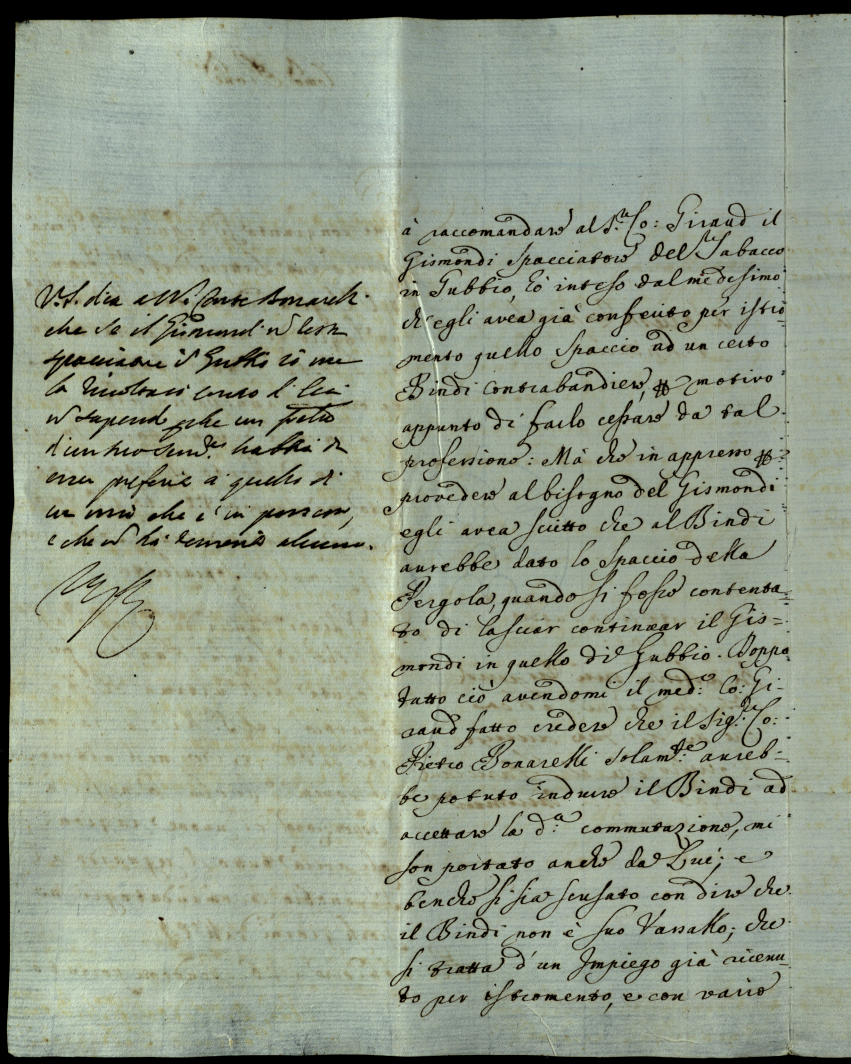 V.S. dica al Sig.r Conte Bonarelli
che se il Gismondi
spacciare
la
sapendo che un
d'un suo habbia di
esser preferito à quello di
un che è in possesso,
e che nō hà demerito alcuno.
à raccomandare al S.r Co: Giraud il
Gismondi Spacciatore del Tabacco
in Gubbio, hò inteso dal medesimo
ch'egli avea già conferito per istro
mento quello Spaccio ad un certo
Bindi Contrabandiere, p motivo
appunto di farlo cessare da tal
professione: Mà che in appresso p
provedere al bisogno del Gismondi
egli avea scritto che al Bindi
aurebbe dato lo Spaccio della
Pergola, quando si fosse contenta
to di lasciar continuar il Gis=
mondi in quello di Gubbio. Doppo
tutto ciò avendomi il med.o Co: Gi-
raud fatto credere che il Sig.r Co:
Pietro Bonarelli solam.te aureb-
be potuto indurre il Bindi ad
accettare la d.a commutazione, mi
son portato anche da Lui; e
benche si sia scusato con dire che
il Bindi non è suo Vassallo; che
si tratta d'un Impiego già ricevu
to per istromento, e con varie